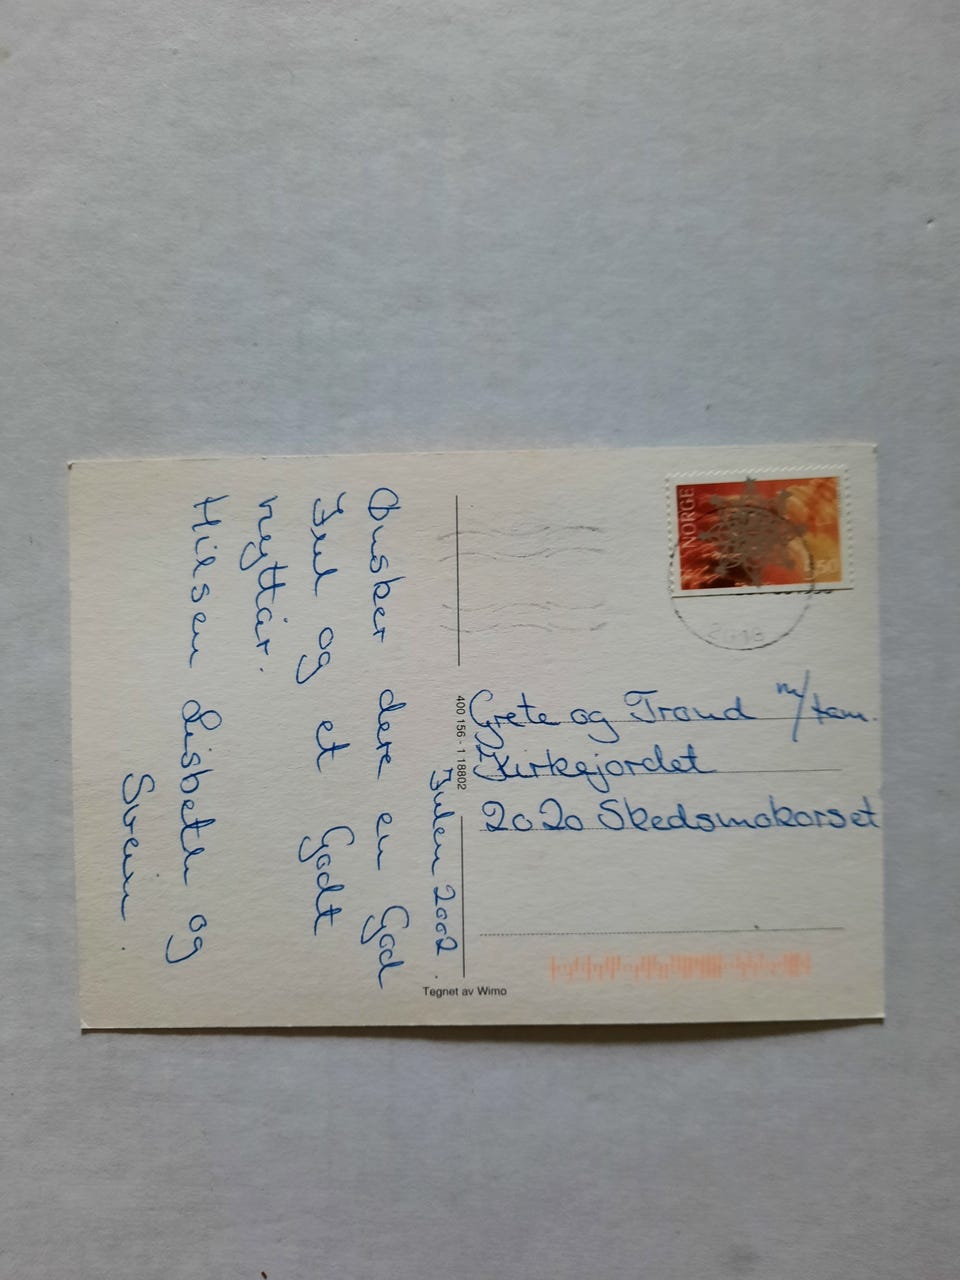 Julen 2002.
Ønsker dere en God
Jul og et Godt
nyttår.
Hilsen Lisbeth og
Svein.
400 156 - 1 18802
Tegnet av Wimo
NORGE
50
Grete og Trond m/fam.
Kirkejordet
2020 Skedsmokorset